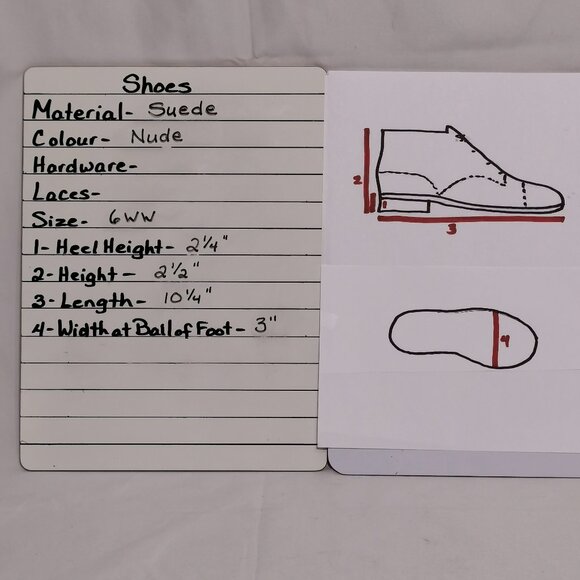 Shoes
Material- Suede
Colour- Nude
Hardware-
Laces-
Size- 6WW
1-Heel Height- 2 1/4"
2-Height- 2 1/2"
3-Length- 10 1/4"
4-Width at Ball of Foot- 3"
2
1
3
4